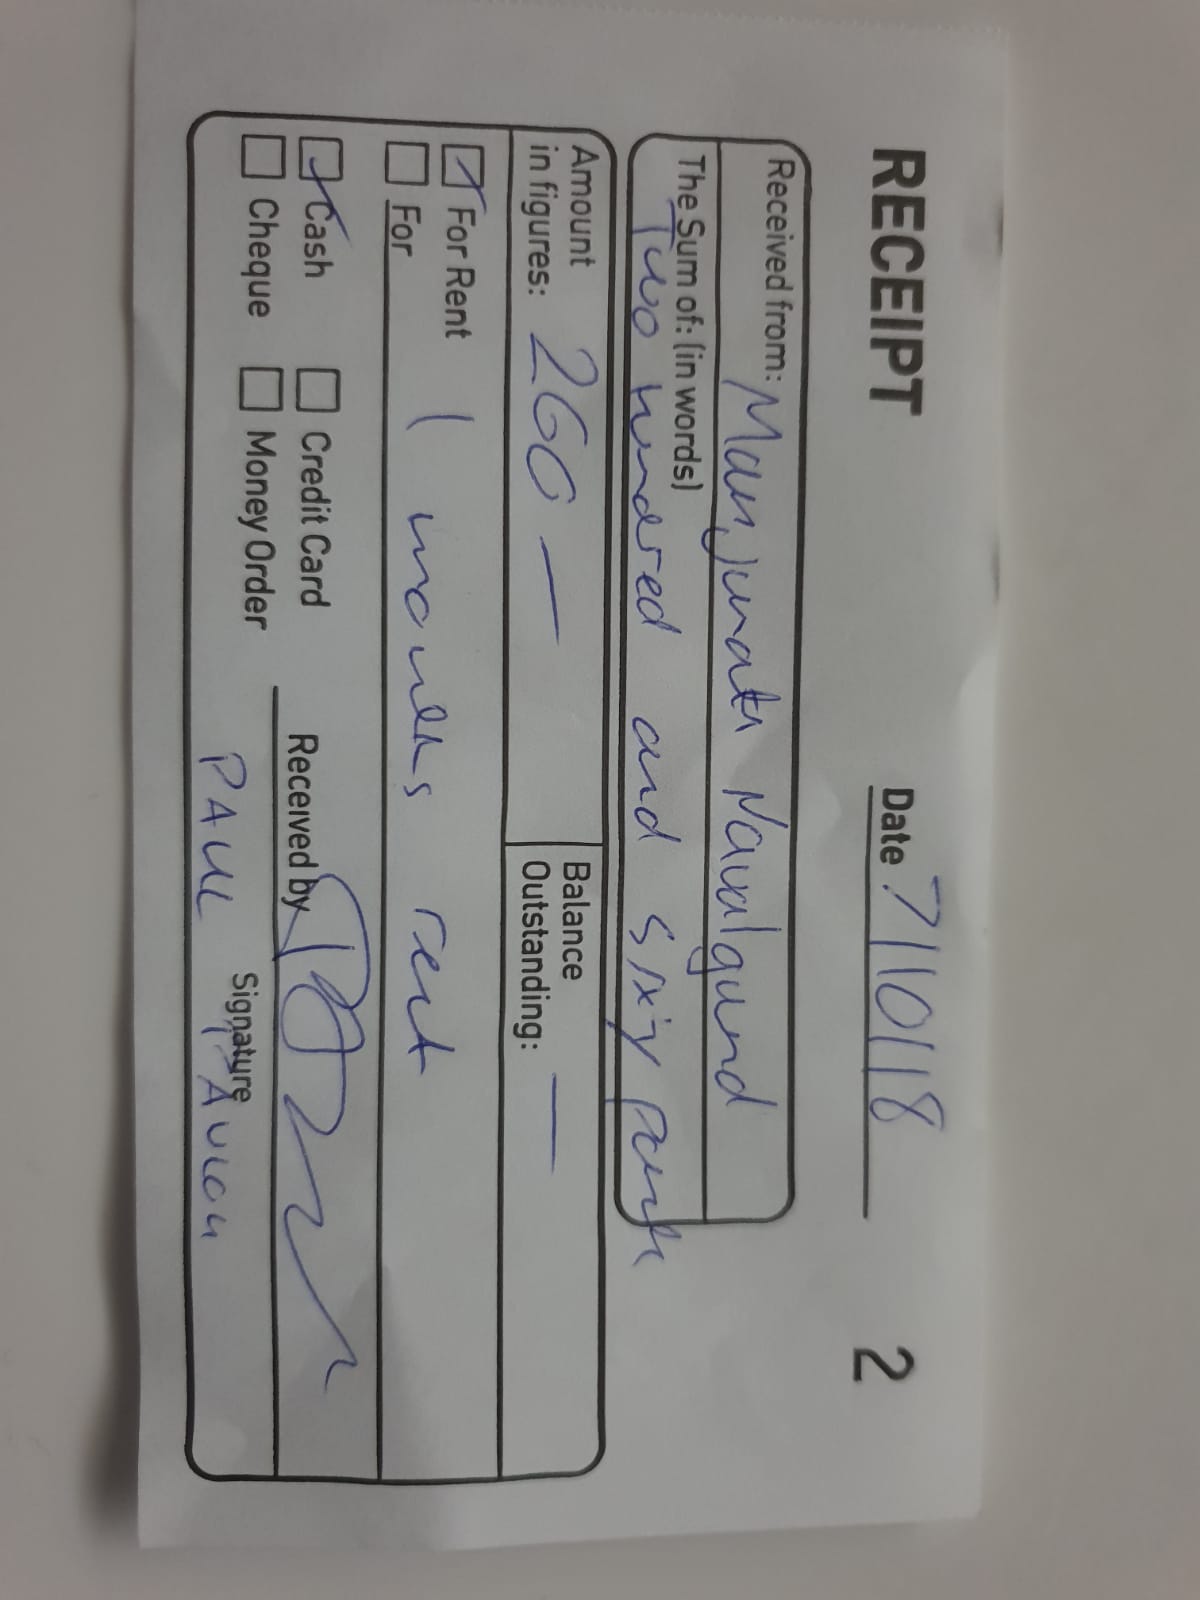 RECEIPT
Date 7/10/18
2
Received from: Manjunath Navalgund
The Sum of: (in words)
Two hundred and sixty
Amount in figures: 260 —
Balance Outstanding: —
For Rent
For
1 months rent
Cash
Credit Card
Cheque
Money Order
Received by
Signature
PAUL